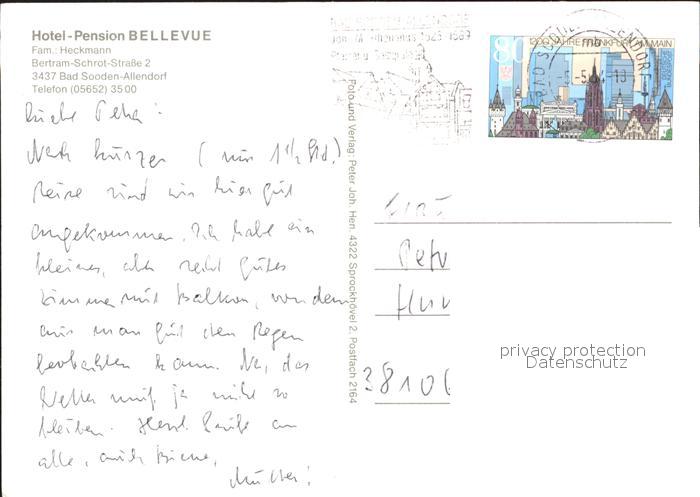 Hotel-Pension BELLEVUE
Fam.: Heckmann
Bertram-Schrot-Straße 2
3437 Bad Sooden-Allendorf
Telefon (05652) 3500
Nach kurzer (nur 1½ Std.)
Reise sind wir hier gut
angekommen. Ich habe ein
kleines, aber recht gutes
Zimmer mit Balkon, von dem
aus man gut den Regen
beobachten kann. Na, das
Wetter muß ja nicht so
bleiben. Herzl. Grüße an
alle, auch
Mutter!
Foto und Verlag: Peter Joh. Hen. 4322 Sprockhövel 2. Postfach 2164
80 1200 JAHRE FRANKFURT AM MAIN
BAD SOODEN-ALLENDORF
38106
privacy protection
Datenschutz